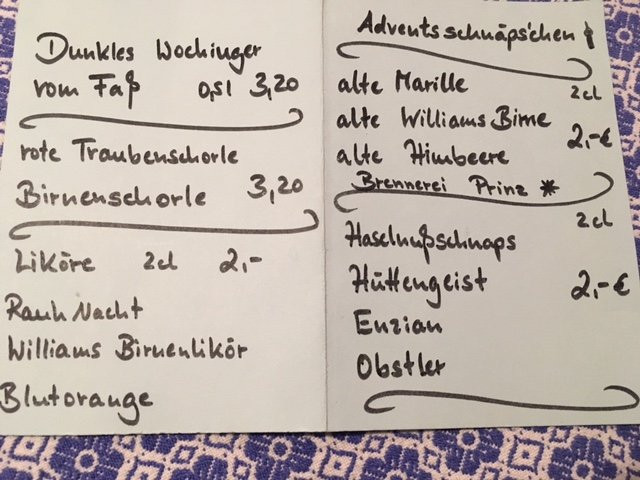 Dunkles Wochinger
vom Faß 0,5l 3,20
rote Traubenschorle
Birnenschorle 3,20
Liköre 2cl 2,-
Rauh Nacht
Williams Birnenlikör
Blutorange
Adventsschnäps'chen
alte Marille 2cl
alte Williams Birne
2,-€
alte Himbeere
Brennerei Prinz *
2cl
Haselnußschnaps
Hüttengeist 2,-€
Enzian
Obstler